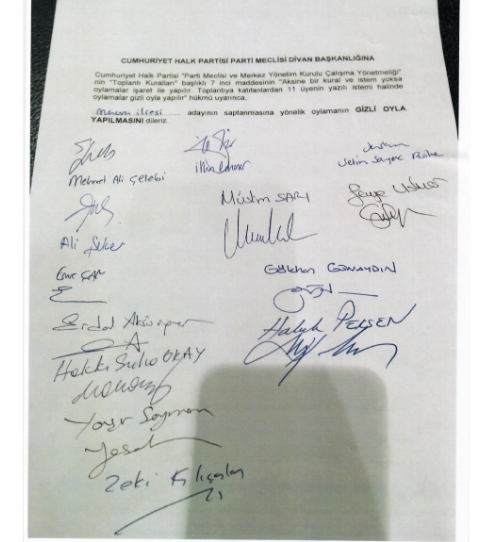 CUMHURİYET HALK PARTİSİ PARTİ MECLİSİ DİVAN BAŞKANLIĞINA
Cumhuriyet Halk Partisi "Parti Meclisi ve Merkez Yönetim Kurulu Çalışma Yönetmeliği"
nin "Toplantı Kuralları" başlıklı 7 inci maddesinin "Aksine bir kural ve istem yoksa
oylamalar işaret ile yapılır. Toplantıya katılanlardan 11 üyenin yazılı istemi halinde
oylamalar gizli oyla yapılır" hükmü uyarınca,
ilçesi adayının saptanmasına yönelik oylamanın GİZLİ OYLA
YAPILMASINI dileriz.
Mehmet Ali Çelebi
Müslim SARI
Ali Şeker
Gökhan GÜNAYDIN
Emre
Erdal Aksünger
Haluk PEKŞEN
Hakkı Süha OKAY
Yaşar Seyman
Zeki Kılıçaslan